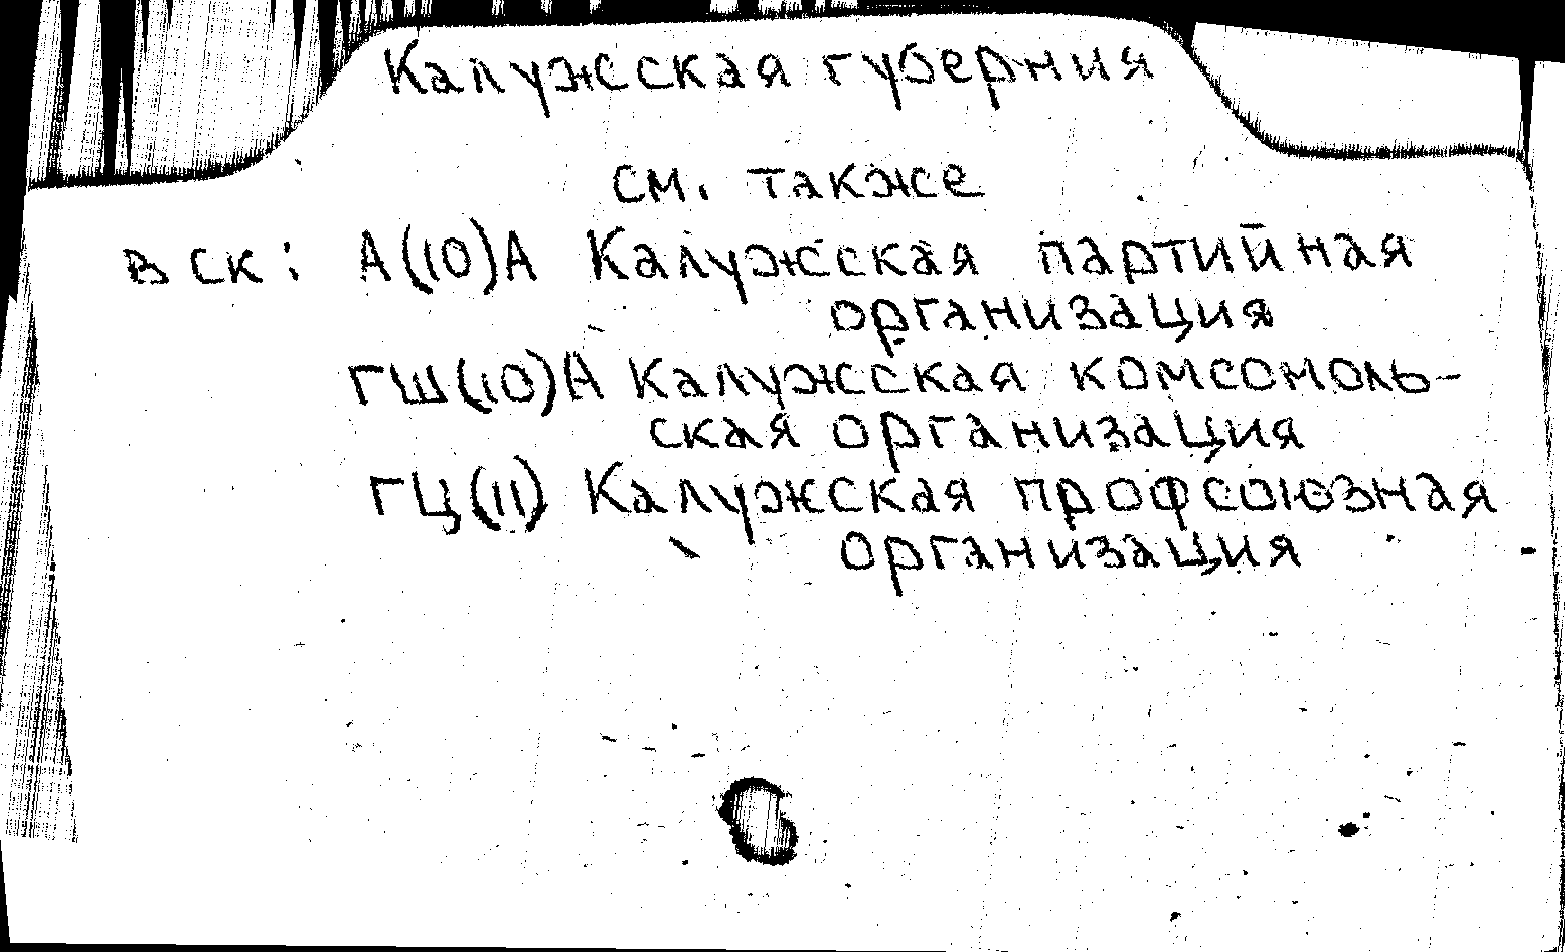 Калужская губерния
см. также
в ск: А(10)А Калужская партийная
организация
ГШ(10)А Калужская комсомоль-
ская организация
ГЦ(11) Калужская профсоюзная
организация